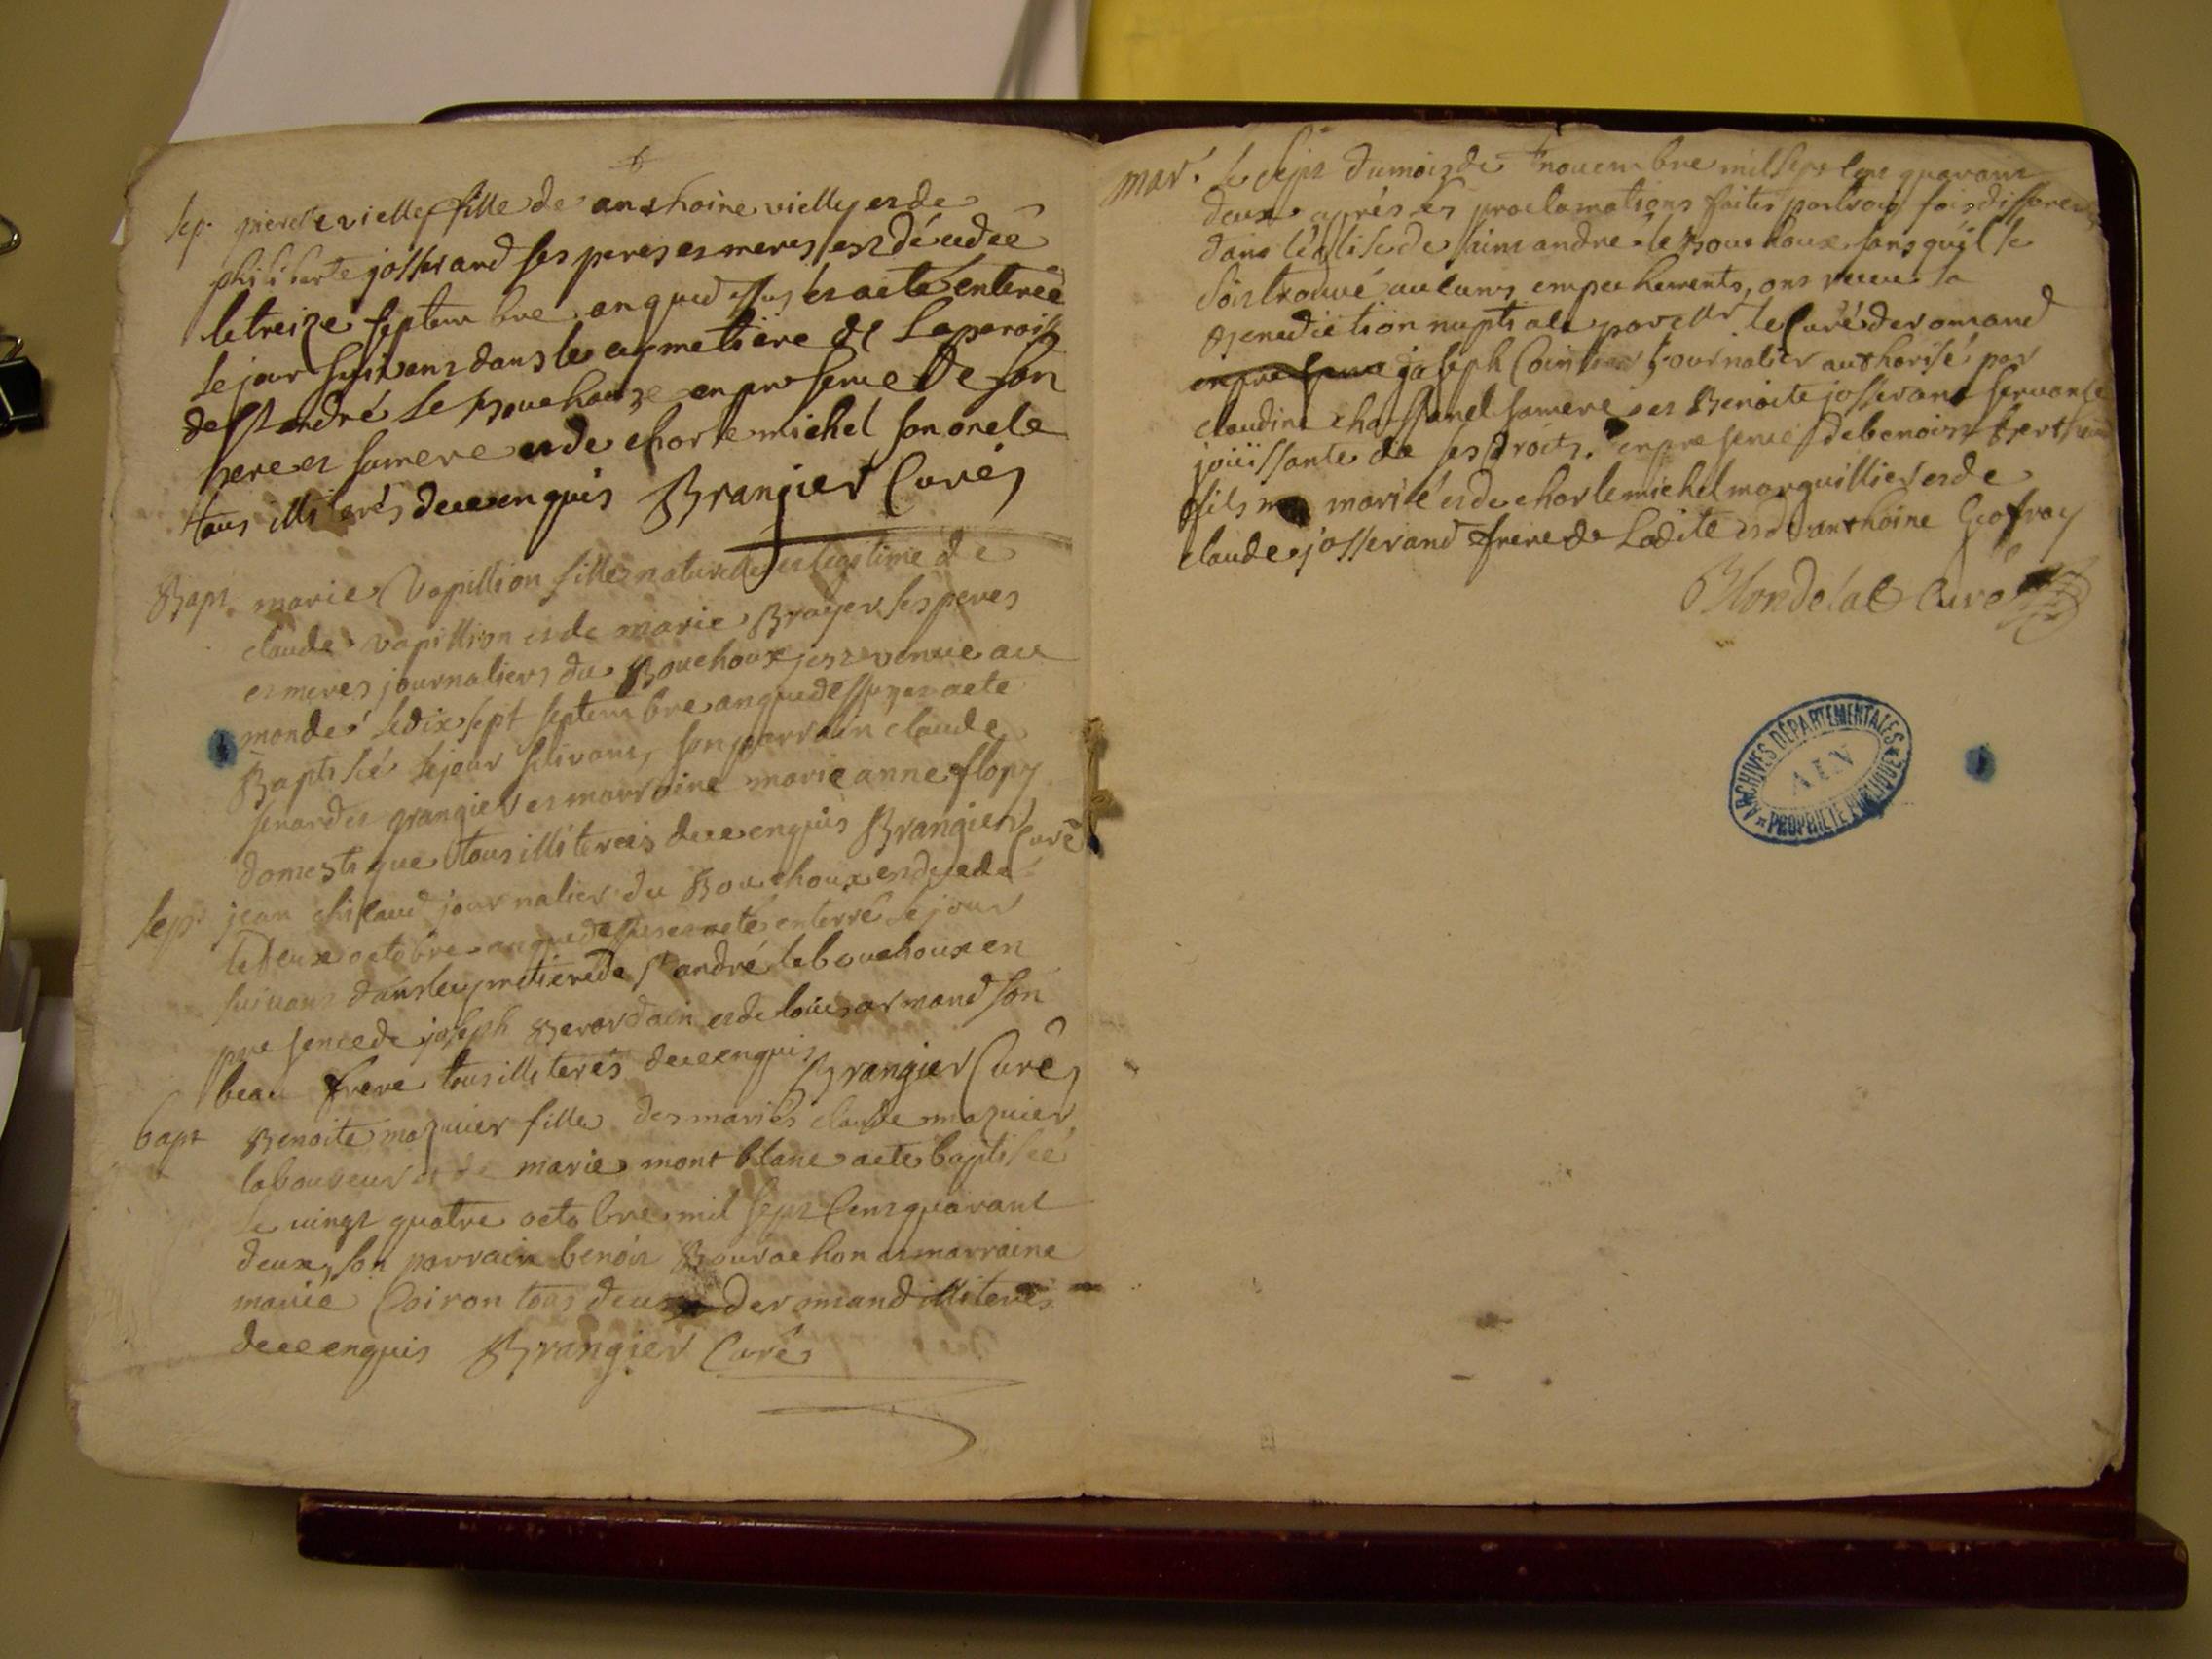 sep. pierrette vielly fille de anthoine vielly et de
philiberte josserand ses peres et meres, est décédée
le treize septembre an que dessus et a eté enterée
le jour suivant dans le cymetiere de la paroisse
de St andré le Bouchoux en presence de son
pere et sa mere et de charle michel son oncle
tous illiterés de ce enquis Brangier Curé
Bapt. marie Vapillion fille naturelle et legitime de
claude vapillion et de marie Brayer ses peres
et meres journaliers du Bouchoux, est venue au
monde le dix sept septembre an que dessus et a ete
Baptisée le jour suivant, son parrain claude
granger et marraine marie anne flopy
domestique tous illiterés de ce enquis Brangier Curé
sep. jean journalier du Bouchoux est decedé
le deux octobre an que dessus et a eté enterré le jour
suivant dans le cymetiere de St andré le bouchoux en
presence de joseph Berardain et de louis armand son
beau frere tous illiterés de ce enquis Brangier Curé
bapt Benoite mazuier fille des mariés claude mazuier
laboureur et de marie mont blanc a ete baptisée
le vingt quatre octobre mil sept Cent quarant
deux, son parrain benoit Bourachon et marraine
marie Coiron tous deux de romand illiterés
de ce enquis Brangier Curé
mar. le sept du mois de novembre mil sept Cent quarant
deux après les proclamations faites par trois fois differentes
dans l'église de saint andré le Bouchoux sans qu'il se
soit trouvé aucuns empechements, ont receu la
Benediction nuptiale par Mr le Curé de romand
en presence joseph journalier authorisé par
claudine chassanel sa mere et Benoite josserand servante
joüissante de ses droits. en presence de benoit
fils marié et de charle michel marguillier et de
claude josserand frere de Ladite et de anthoine Geofray
Blondelat Curé
ARCHIVES DÉPARTEMENTALES
AIN
PROPRIÉTÉ PUBLIQUE